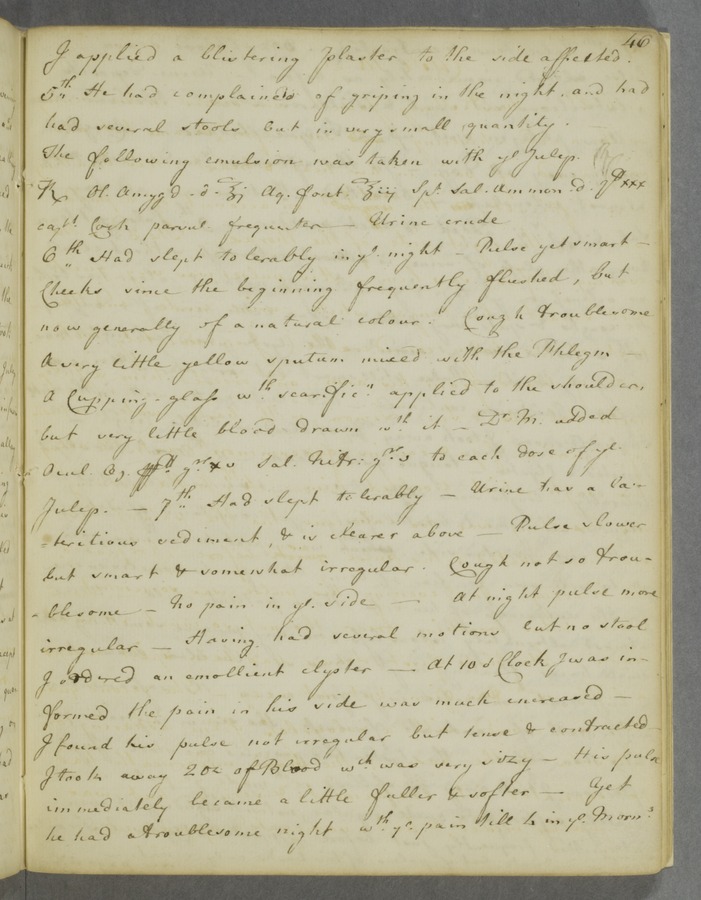 46
I applied a blistering plaster to the side affected.
5th He had complained of griping in the night. and had
had several stools but in very small quantity.
The following emulsion was taken with ye Julep.
Rx Ol. Amygd. d. ʒj Aq. font ʒiij Spt. Sal. Ammon. d. gtt xxx
capt. Coch parvul. frequenter — Urine crude
6th Had slept tolerably in ye. night — Pulse yet smart —
Cheeks since the beginning frequently flushed, but
now generally of a natural colour. Cough troublesome
A very little yellow sputum mixed with the Phlegm —
A Cupping-glass wth scarificn applied to the shoulders,
but very little blood drawn wth it — Dr. M. added
Ocul. Cg. ppt. grs xv Sal. Nitr: grs v to each dose of ye.
Julep. — 7th Had slept tolerably — Urine has a la-
-teritious sediment, & is clearer above — Pulse slower
but smart & somewhat irregular. Cough not so trou-
-blesome — No pain in ye. side — At night pulse more
irregular — Having had several motions but no stool
I ordered an emollient clyster — At 10 o Clock I was in-
formed the pain in his side was much increased —
I found his pulse not irregular but tense & contracted
I took away 2oz of Blood wch was very sizy — His pulse
immediately became a little fuller & softer — Yet
he had a troublesome night wth ye. pain till 4 in ye. Morng